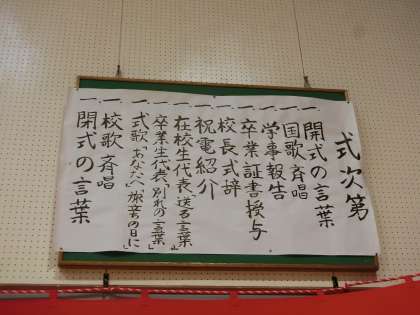 式次第
一、開式の言葉
一、国歌斉唱
一、学事報告
一、卒業証書授与
一、校長式辞
一、祝電紹介
一、在校生代表「送る言葉」
一、卒業生代表「別れの言葉」
一、式歌「あなたへ 旅立ちの日に」
一、校歌斉唱
一、閉式の言葉